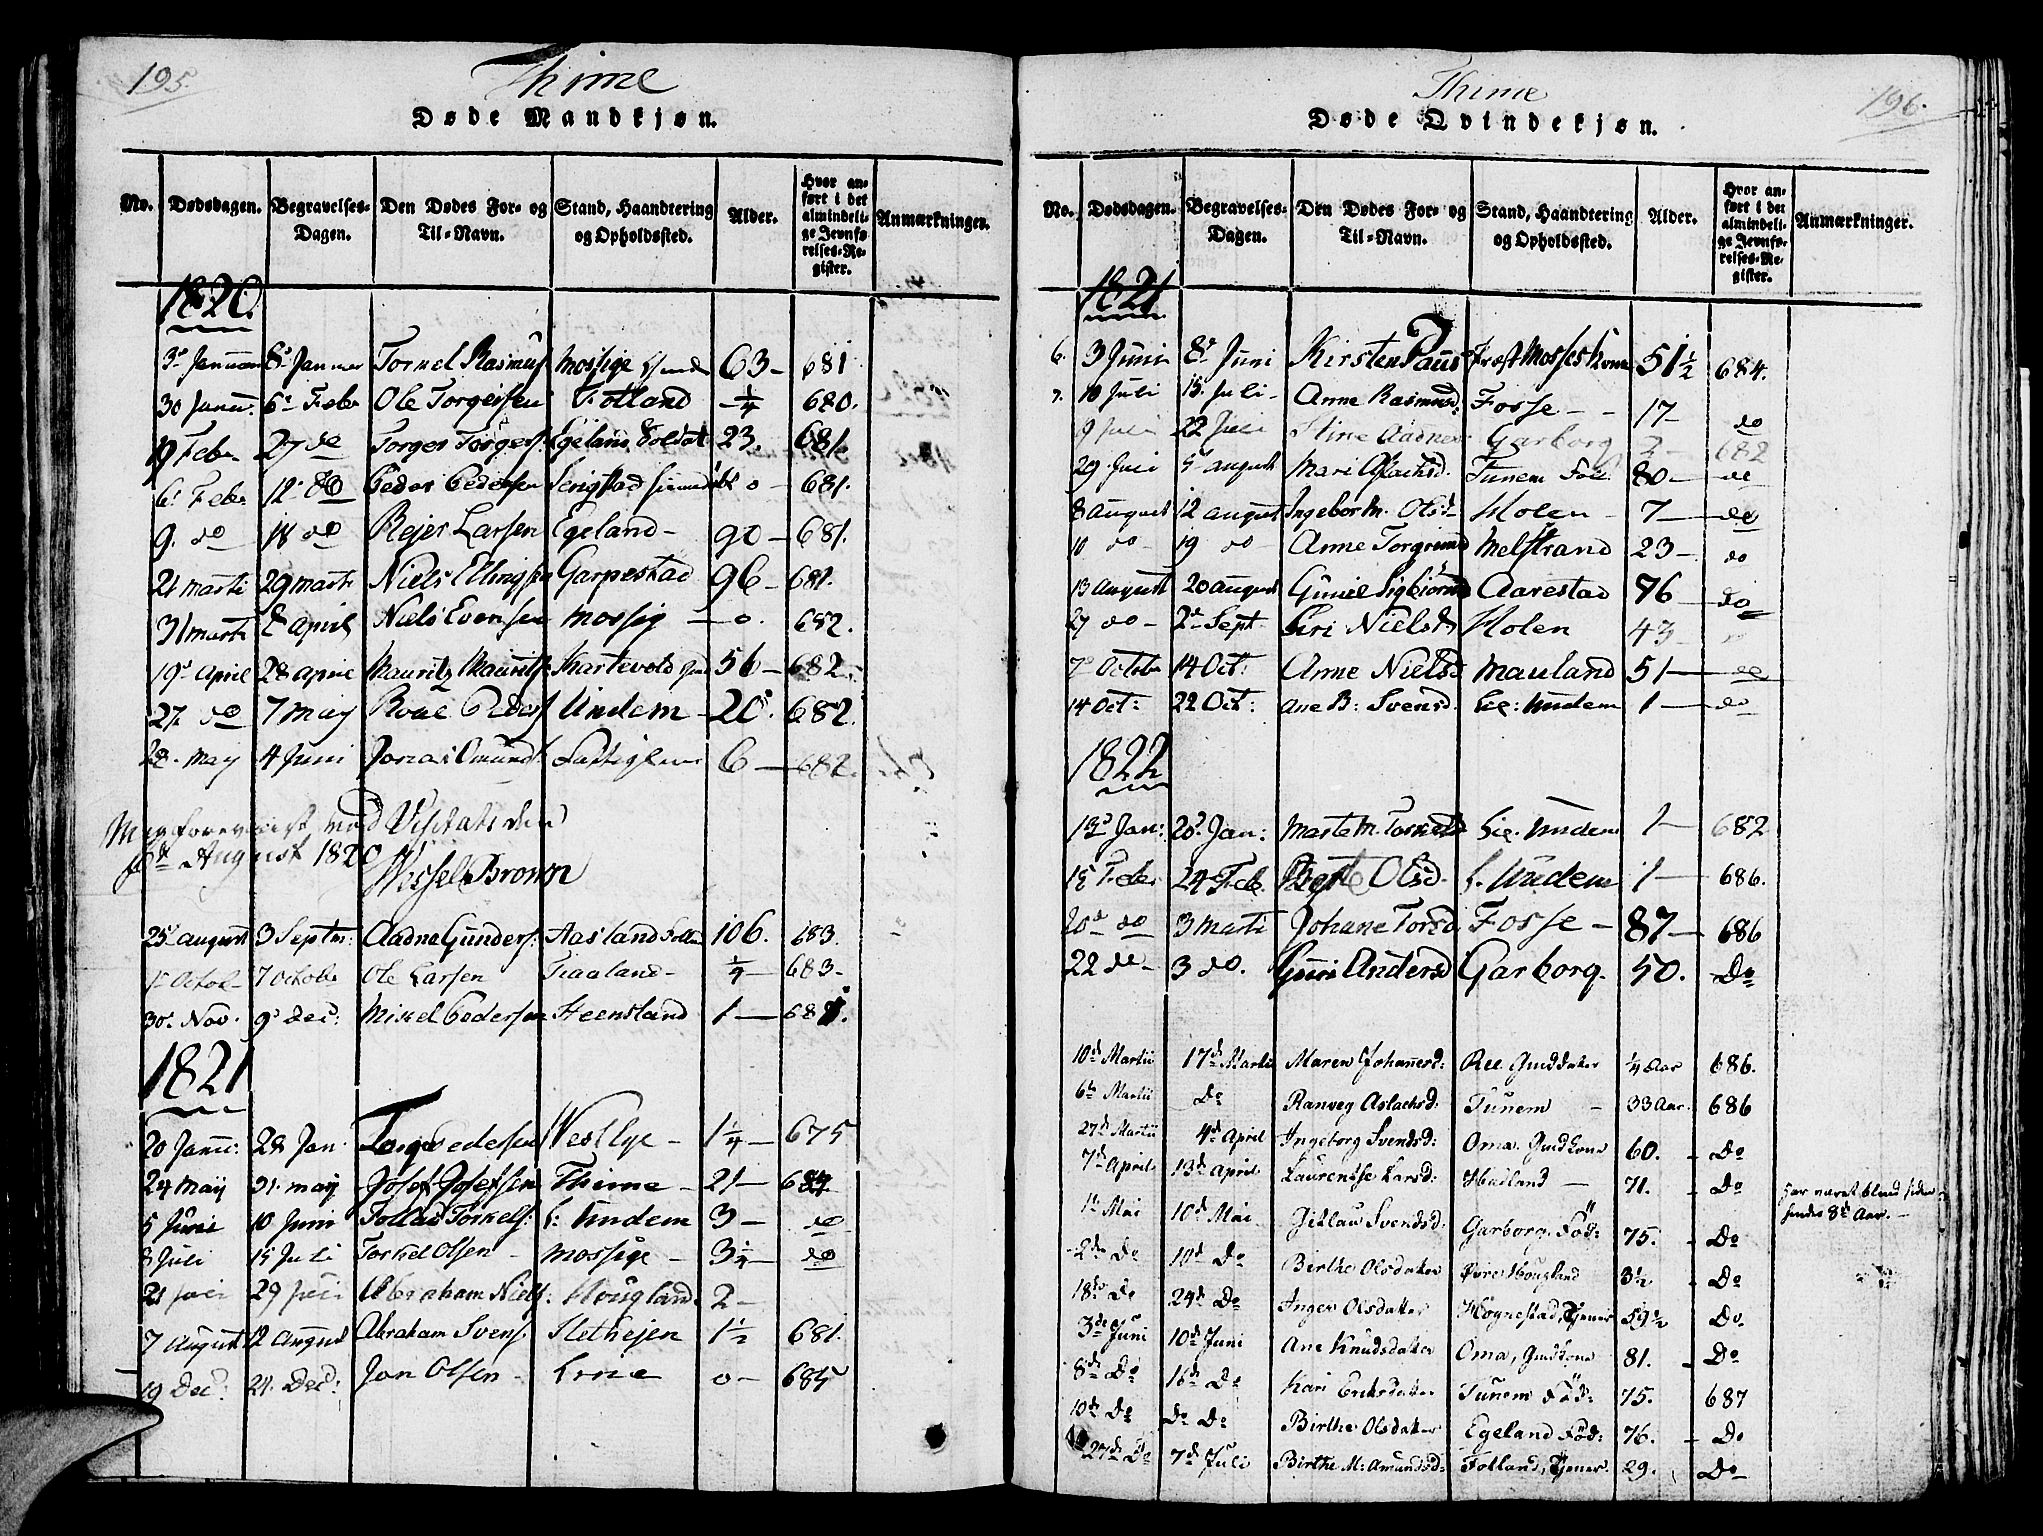 195.
Thime
Døde Mandkjøn.
No. Dødsdagen. Begravelses-Dagen. Den Dødes For- og Til-Navn. Stand, Haandtering og Opholdssted. Alder. Hvor anført i det almindelige Jevnførelses-Register. Anmærkninger.
1820.
3d Januar 8d Januar Torkel Rasmus Mossige 63 - 681
30 Janu. 6d Febr Ole Torgersen Fotland - ¼ 680.
19 Febr 27 do Torger Torgers. Egeland Soldat 23. 681.
6d Febr 12d do Peder Pedersen Serigstad o - 681.
9. do 18 do Rejer Larsen Egeland - 90 - 681.
21 Marti 29 Marti Niels Ellingsen Garpestad 96 - 681.
31 Marti 2d April Niels Evensen Mossig - o. 682.
19d April 28 April Mauritz Mauritz Skartevold 56 - 682.
27 do 7 May Roal Peders Undem - 20. 682.
28. May 4 Juni Jonas Omund. 6 - 682.
Mig foreviist ved Visitatsen
August 1820
Wessel Brown
25d August 3 Septm: Aadne Gunders: Aasland 106. 683.
1d Octob 7 Octobr Ole Larsen Tiaaland - ¼ - 683 -
30d. Nov. 9d Dec: Mikel Pedersen Steensland 1 - 681.
1821
20 Janu: 28 Jan. Torger Pedersen Vestlye - 1¼ - 675
24 Maij 31. Maij Josef Josefsen Thime - 21 - 684
5 Juni 10 Juni Tollas Torkels: L: Undem 3 - do
8 Juli 15 Juli Torkel Olsen - Mossige - 3¼ - do
21 Juli 29 Juli Abraham Niels: Hougland. 2 -
7 August 12 August Abraham Svens. Slethejen 1½ 681.
19 Dec: 21. Dec: Jan Olsen - Lrne o - 685
196.
Thime
Døde Qvindekjøn.
No. Dødsdagen. Begravelses-Dagen. Den Dødes For- og Til-Navn. Stand, Haandtering og Opholdssted. Alder. Hvor anført i det almindelige Jevnførelses-Register. Anmærkninger.
1821
6. 3 Juni 8d Juni Kirsten Paus Præst Mosses Kone 51½ 684.
7. 10 Juli 15. Juli - Anne Rasmusd. Fosse - - 17 - do
9 Juli 22 Juli Stine Aadne Garborg 2 - 682
29. Juli 5d August Mari Aslachsd. Tunem 80 - do
8 August 12 August Ingebor M. Olsd Holen - 7 - do
10 do - 19 do - Anne Torgrimd Melstrand 23 - do
13 August 20 August Guniel Sigbiørnsd Aarestad 76 - do
27 do - 2d Sept. Siri Nielsd Holen 43 -
7d Octobr 14 Oct: Anne Nielsd Mauland 51 - do
14 Oct: 22 Oct: Ane B: Svensd. Lie: Undem 1 - do
1822
13d Jan: 20d. Jan: Marte M. Torkelsd Lie. Undem 1 - 682
15 Febr 24 Feb. Berte Olsd. L. Undem 1 - 686.
20d do 3 Marti Johane Torsd. Fosse - 87 - 686
22 do - 3 do. Guri Andersd Garborg. 50. Do
10d Martii 17d Marti Maren Johannesd: Ree Gmddatter ¼ Aar 686.
6te Martii Do Ranveg Aslachsd. Tunem - 33 Aar. 686
27d Martii 4d April Ingeborg Svendsd: Oma. Gmdkone 60. - Do
7d April 13d April Laurentse Larsd: Hadland - 71. - Do Har været blind siden hendes 8d Aar. -
1te Mai 10d Mai Jitlau Svendsd: Garborg. Fød: 75. - Do
2de Do 10d Do Birthe Olsdatter Øvre Hougland 3½ - Do
18d Do 24d Do Inger Olsdatter Høgnestad, Tjener 59½ Do.
3de Juni 10d Juni Ane Knudsdatter Oma, Gmdkone 81. - Do
8d Do 16d Do Kari Eriksdatter Tunem Fød: 75. 687
10d Do Do Do Birthe Olsdatter Egeland Fød: 76. - Do
27d Do 7d Juli Birthe M: Amundsd: Fotland, Tjener. 29. Do